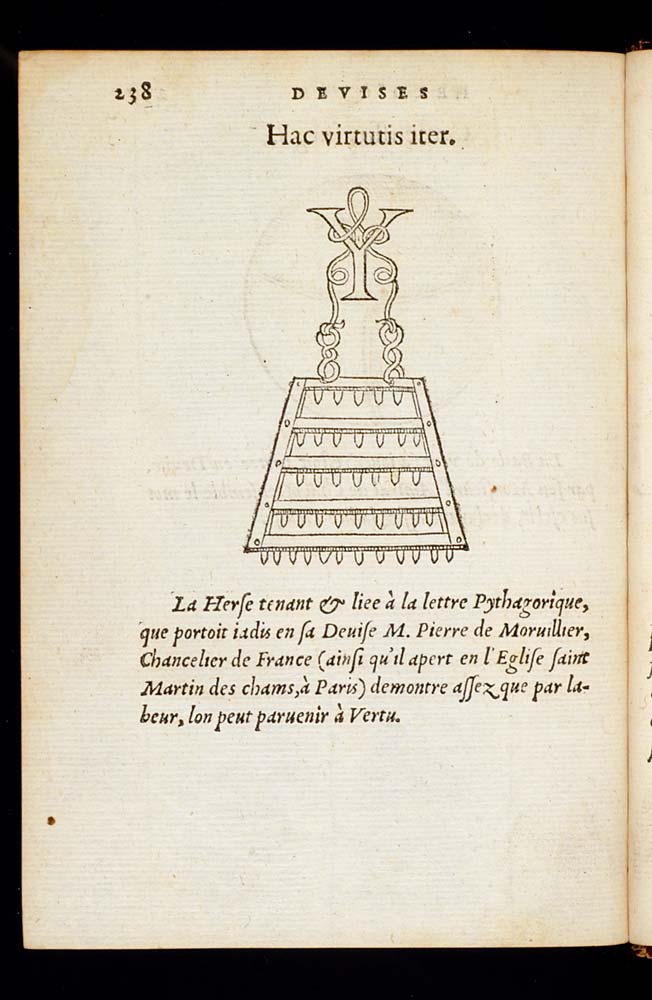 238 DEVISES
Hac virtutis iter.
Y
La Herse tenant & liee à la lettre Pythagorique,
que portoit iadis en sa Deuise M. Pierre de Moruillier,
Chancelier de France (ainsi qu'il apert en l'Eglise saint
Martin des chams, à Paris) demontre assez que par la-
beur, lon peut paruenir à Vertu.